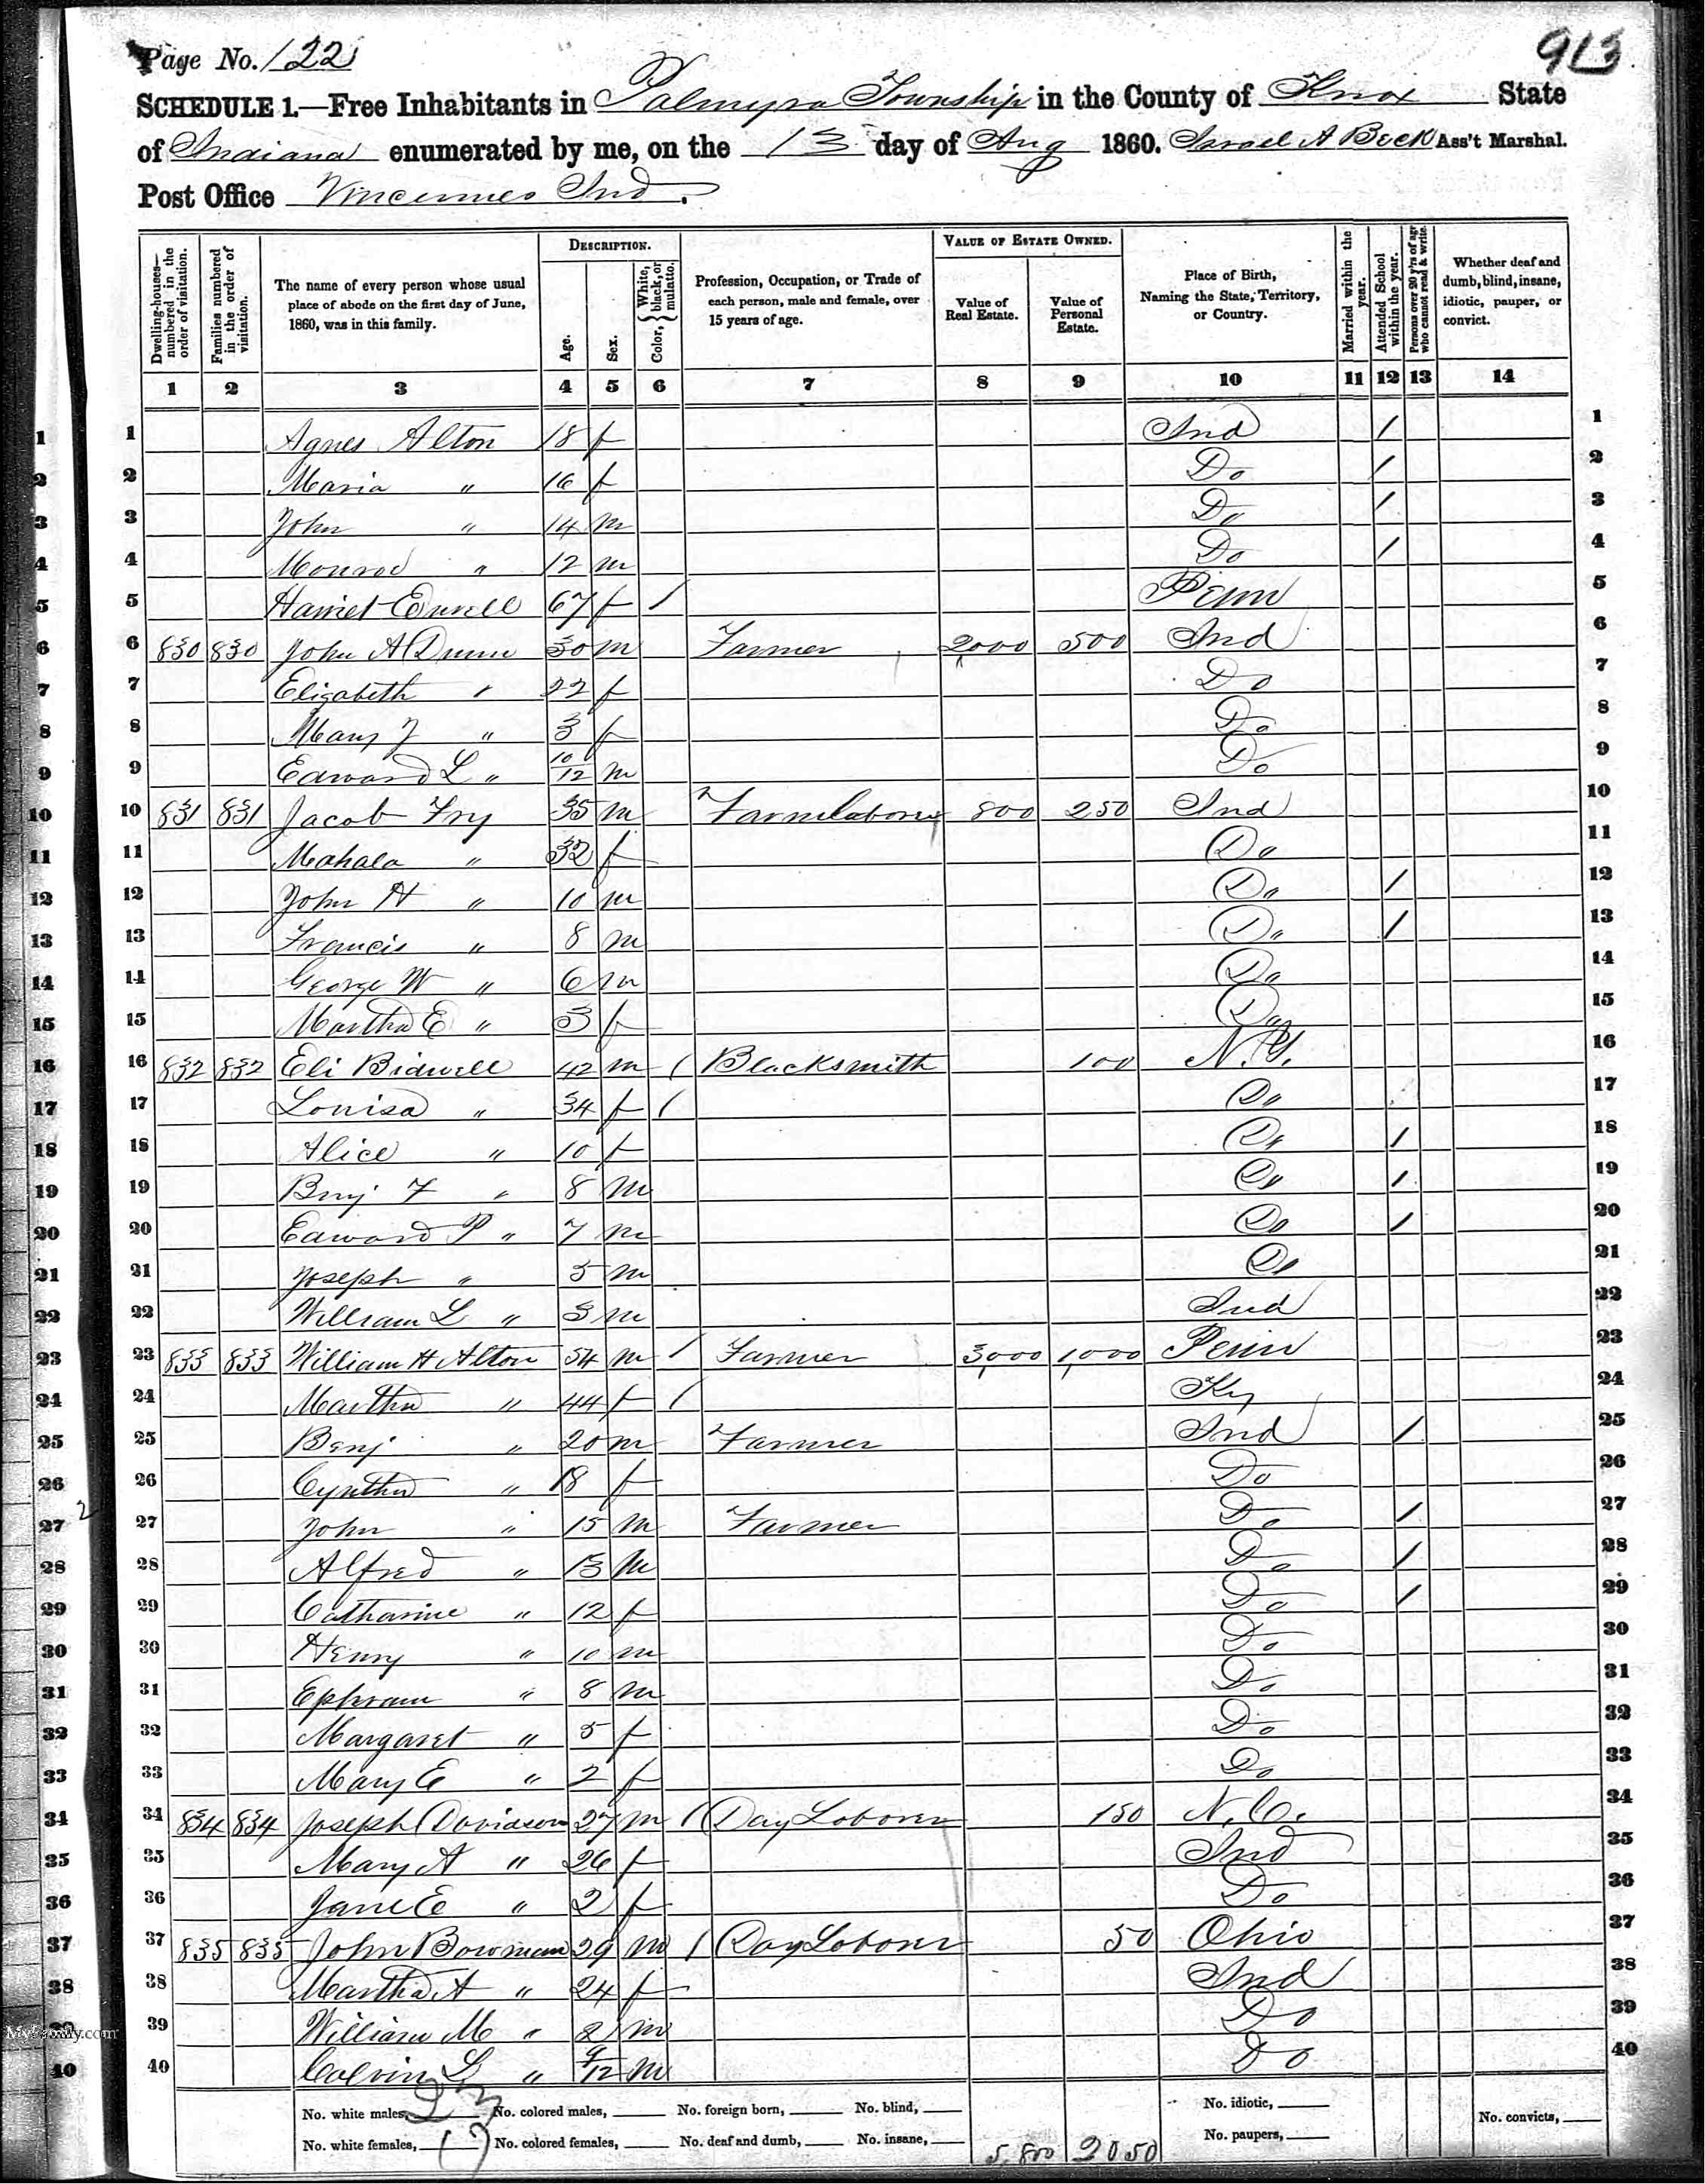 Page No. 122
913
SCHEDULE 1.—Free Inhabitants in Palmyra Township in the County of Knox State
of Indiana enumerated by me, on the 13 day of Aug 1860. Israel A Beck Ass't Marshal.
Post Office Vincennes Ind.
Dwelling-houses—numbered in the order of visitation.
Families numbered in the order of visitation.
The name of every person whose usual place of abode on the first day of June, 1860, was in this family.
DESCRIPTION.
Age.
Sex.
Color, { White, black, or mulatto.
Profession, Occupation, or Trade of each person, male and female, over 15 years of age.
VALUE OF ESTATE OWNED.
Value of Real Estate.
Value of Personal Estate.
Place of Birth, Naming the State, Territory, or Country.
Married within the year.
Attended School within the year.
Persons over 20 y'rs of age who cannot read & write.
Whether deaf and dumb, blind, insane, idiotic, pauper, or convict.
1 2 3 4 5 6 7 8 9 10 11 12 13 14
1 1 Agnes Alton 18 f Ind / 1
2 2 Maria " 16 f Do / 2
3 3 John " 14 m Do / 3
4 4 Monroe " 12 m Do / 4
5 5 Harriet 67 f / Penn 5
6 6 830 830 John A Dunn 30 m Farmer 2000 500 Ind 6
7 7 Elizabeth " 22 f Do 7
8 8 Mary F " 3 f Do 8
9 9 Edward L " 10/12 m Do 9
10 10 831 831 Jacob Fry 35 m Farmlaborer 800 250 Ind 10
11 11 Mahala " 32 f Do 11
12 12 John H " 10 m Do / 12
13 13 Francis " 8 m Do / 13
14 14 George W " 6 m Do 14
15 15 Martha E " 3 f Do 15
16 16 832 832 Eli Bidwell 42 m / Blacksmith 100 N.Y. 16
17 17 Louisa " 34 f / Do 17
18 18 Alice " 10 f Do / 18
19 19 Benj F " 8 m Do / 19
20 20 Edward P " 7 m Do / 20
21 21 Joseph " 5 m Do 21
22 22 William L " 3 m Ind 22
23 23 833 833 William H Alton 54 m / Farmer 3,000 1,000 Penn 23
24 24 Martha " 44 f / Ky 24
25 25 Benj " 20 m Farmer Ind / 25
26 26 Cyntha " 18 f Do 26
27 2 27 John " 15 m Farmer Do / 27
28 28 Alfred " 13 m Do / 28
29 29 Catharine " 12 f Do / 29
30 30 Henry " 10 m Do 30
31 31 Ephraim " 8 m Do 31
32 32 Margaret " 5 f Do 32
33 33 Mary E " 2 f Do 33
34 34 834 834 Joseph Davidson 27 m / Day Laborer 150 N.C. 34
35 35 Mary A " 26 f Ind 35
36 36 Jane E " 2 f Do 36
37 37 835 835 John Bowman 29 m / Day Laborer 50 Ohio 37
38 38 Martha A " 24 f Ind 38
39 39 William M " 2 m Do 39
40 40 Calvin L " 9/12 m Do 40
MyFamily.com
No. white males, 23 No. colored males, No. foreign born, No. blind, No. idiotic, No. convicts,
No. white females, 17 No. colored females, No. deaf and dumb, No. insane, 5,800 2050 No. paupers,